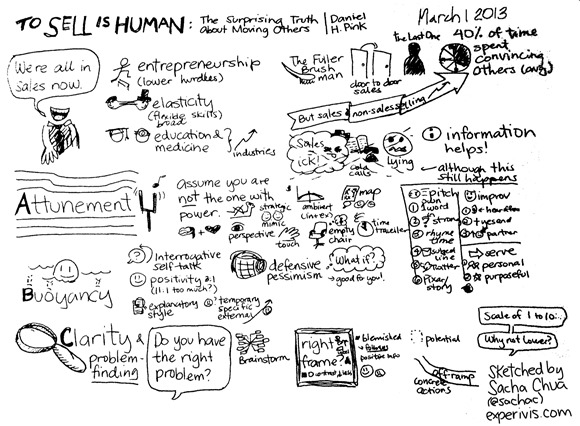 TO SELL IS HUMAN: The Surprising Truth About Moving Others | Daniel H. Pink
March 1 2013
We're all in sales now.
entrepreneurship
(lower hurdles)
elasticity
(flexible skills)
broad
education &
medicine
industries
The Fuller
Brush
man
door to door
sales
the Last One
40% of time
spent
convincing
others (avg)
But sales & non-sales selling
Sales
ick!
cold
calls
lying
information
helps!
although this
still happens
Attunement
assume you are
not the one with
power.
strategic
mimic
perspective
touch
ambient
map
empty
chair
time
traveller
pitch
1 word
? strong
rhyme
time
subject
line
twitter
pixar/
story
improv
yes and
partner
serve
personal
purposeful
Buoyancy
Interrogative
self-talk
positivity 3:1
(11:1 too much?)
explanatory
style
temporary
specific
external
defensive
pessimism
What if?
good for you!
Clarity &
problem-
finding
Do you have
the right
problem?
Brainstorm
right
frame?
blemished
positive info
potential
off-ramp
concrete
actions
Scale of 1 to 10...
Why not lower?
Sketched by
Sacha Chua
(@sachac)
experivis.com